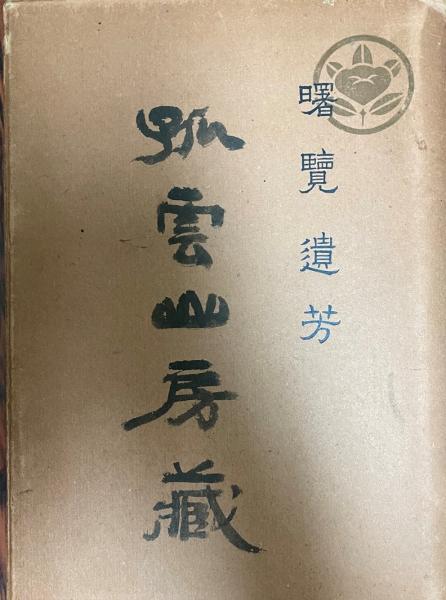 曙覽遺芳
孤雲山房藏